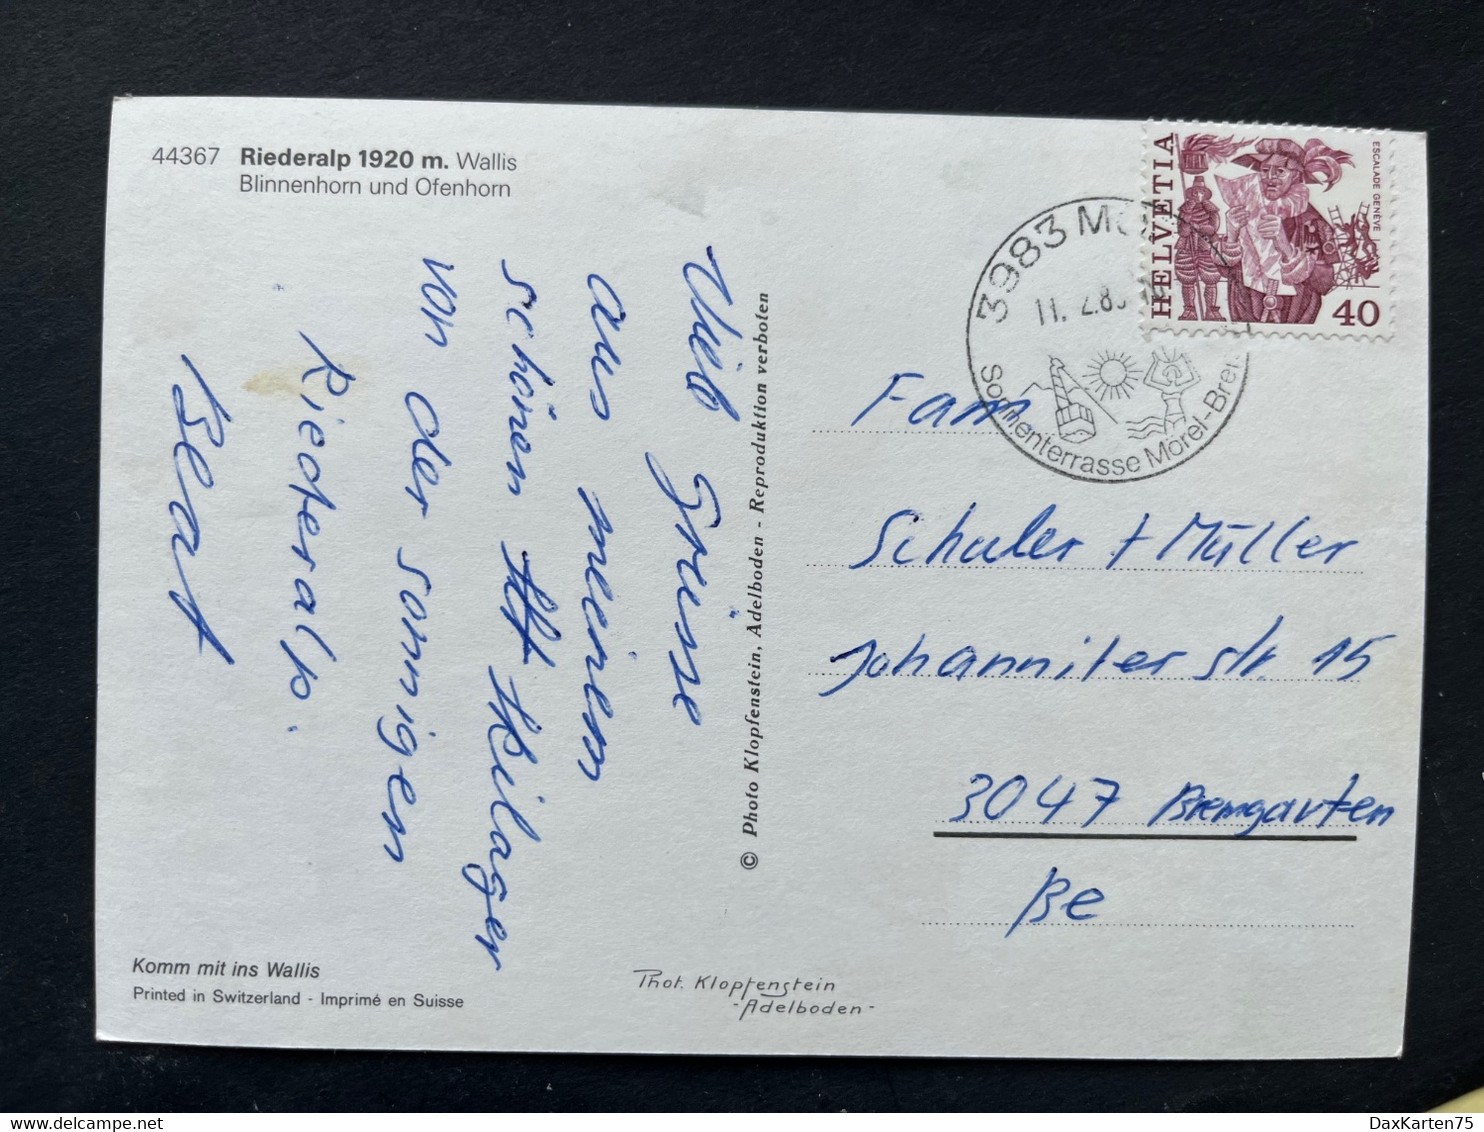 44367 Riederalp 1920 m. Wallis
Blinnenhorn und Ofenhorn
Vieb Grüsse
aus meinem
schönen Skilager
von der sonnigen
Riederalp.
Beat
Komm mit ins Wallis
Printed in Switzerland - Imprimé en Suisse
© Photo Klopfenstein, Adelboden - Reproduktion verboten
Phot. Klopfenstein
-Adelboden-
3983 MÖ
11. 2.8
Sonnenterrasse Mörel-Brei
HELVETIA
ESCALADE GENÈVE
40
Fam.
Schaler + Müller
Johanniterstr. 15
3047 Bremgarten
Be
DaxKarten75